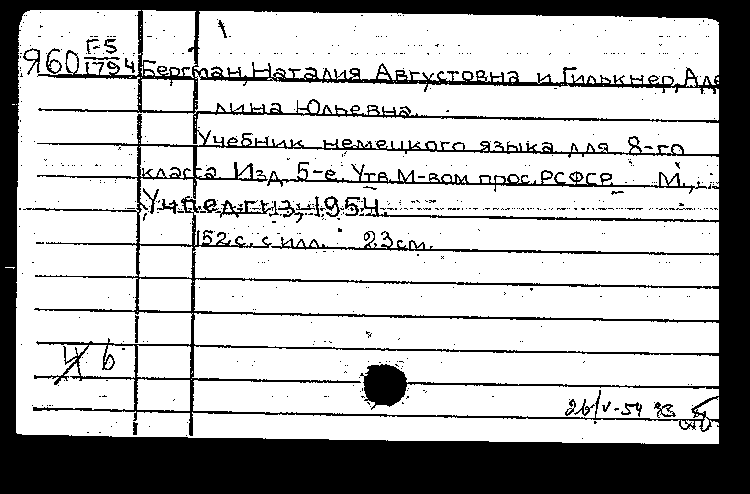 Г-5
Я60 1754 Бергман, Наталия Августовна и Гилькнер, Аде
лина Юльевна.
Учебник немецкого языка для 8-го
класса Изд. 5-е. Утв. М-вом прос. РСФСР. М.,
Учпедгиз, 1954.
152 с. с илл. 23 см.
6
26/V-54